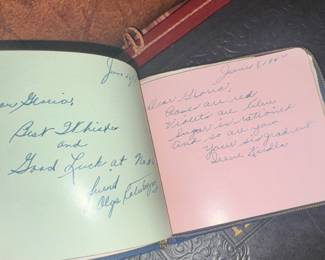 June
Dear Gloria,
Best Wishes
and
Good Luck at
friend
Olga
June 8, 194
Dear Gloria,
Roses are red
Violets are blue
Sugar is rationed
And so are you
Your
Irene